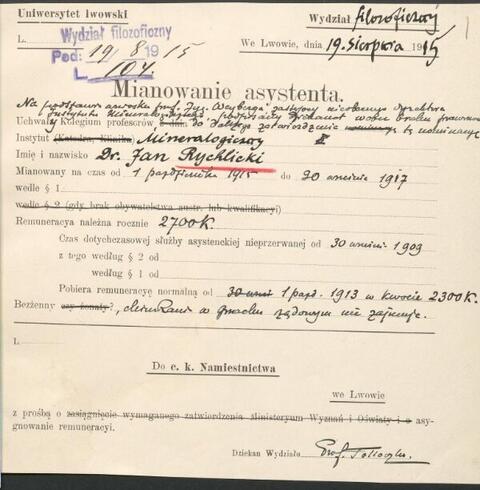 Uniwersytet lwowski
Wydział filozoficzny
L.
Wydział filozoficzny
Pod: 19/8 1915
L. 104.
We Lwowie, dnia 19. Sierpnia 1915
Mianowanie asystenta.
Na podstawie wniosku prof. Zyg. Weyberga zastępcy Dyrektora
Instytutu Mineralogicznego, Dziekanat wobec braku
Uchwały Kolegium profesorów z dnia do zatwierdzenie tę nominację
Instytut (Katedra, Klinika) Mineralogiczny
Imię i nazwisko Dr. Jan Rychlicki
Mianowany na czas od 1 października 1915 do 30 września 1917
według § 1
według § 2 (gdy brak obywatelstwa austr. lub kwalifikacyi)
Remuneracya należna rocznie 2700 K.
Czas dotychczasowej służby asystenckiej nieprzerwanej od 30 wrześni 1909
z tego według § 2 od
według § 1 od
Pobiera remuneracyę normalną od 30 wrześ 1 paźd. 1913 w kwocie 2300 K.
Bezżenny czy żonaty?, mieszkania w gmachu rządowym nie zajmuje.
L.
Do c. k. Namiestnictwa
we Lwowie
z prośbą o zasiągnięcie wymaganego zatwierdzenia Ministeryum Wyznań i Oświaty i o asy-
gnowanie remuneracyi.
Dziekan Wydziału Prof. Tołłoczko